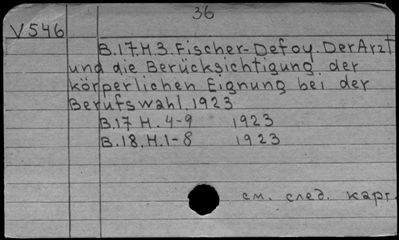 36
V546
B.17.H.3.Fischer-Defoy.Der Arzt
und die Berücksichtigung der
körperlichen Eignung bei der
Berufswahl.1923
B.17 H.4-9 1923
B.18.H.1-8 1923
см. след. карт.